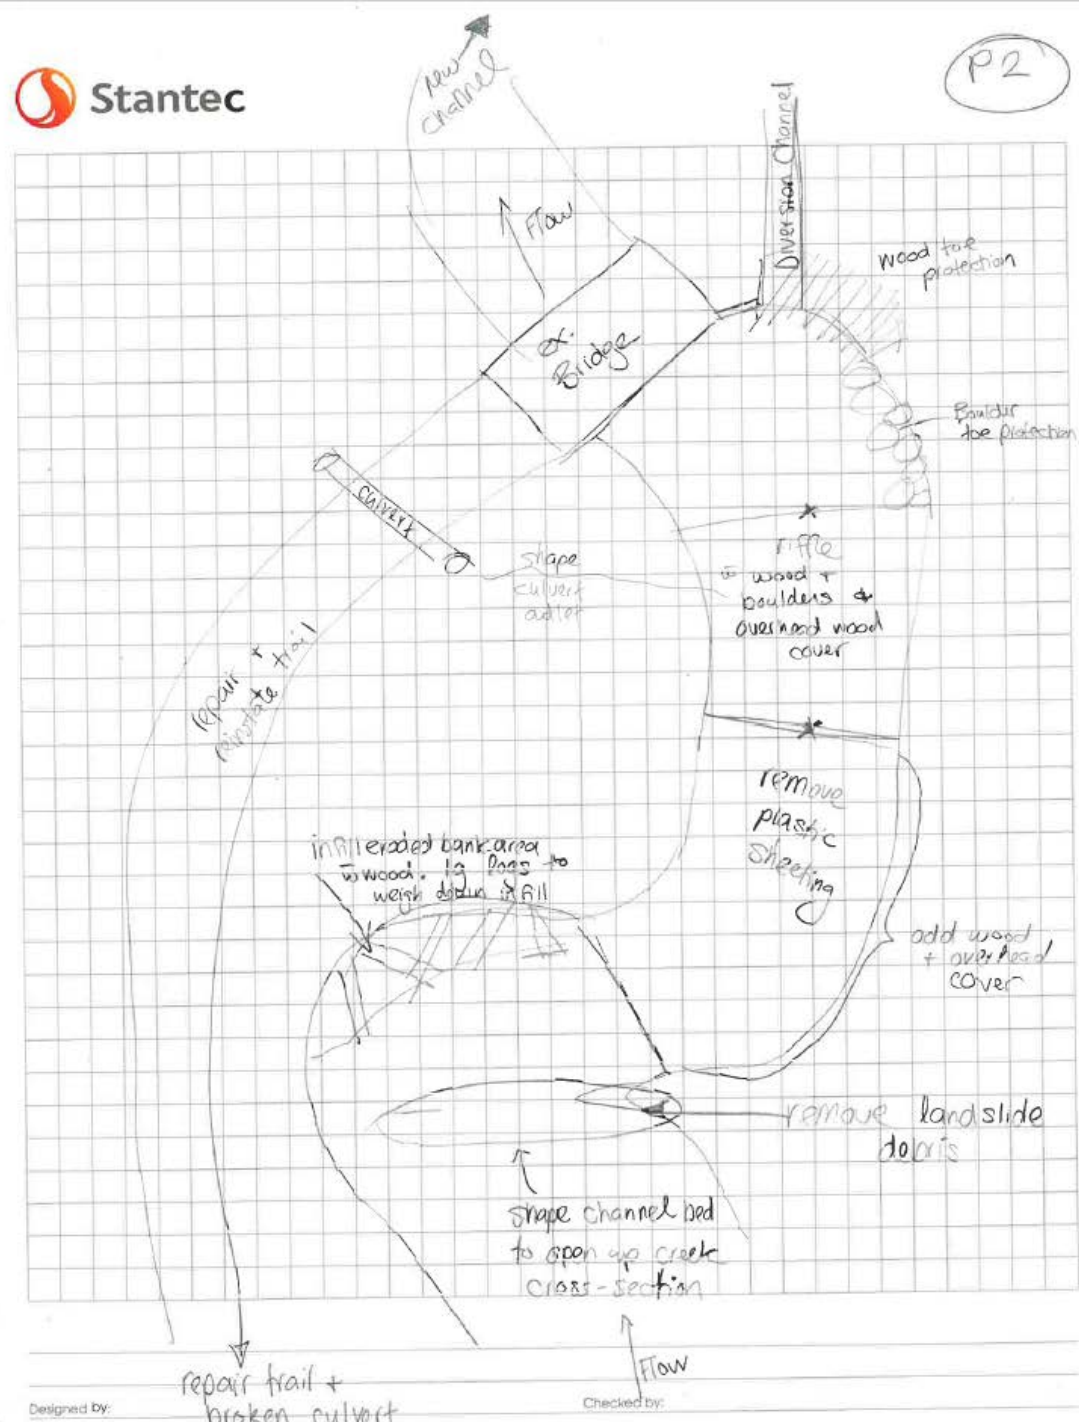 new
channel
P2
Stantec
Diversion Channel
Flow
wood toe
protection
ex.
Bridge
Boulder
toe protection
culvert
riffle
shape
culvert
outlet
wood +
boulders &
overhead wood
cover
repair +
reinstate trail
remove
plastic
sheeting
infill eroded bank area
w wood. lg logs to
weigh down infill
add wood
+ overhead
cover
remove landslide
debris
shape channel bed
to open up creek
cross-section
Flow
repair trail +
broken culvert
Designed by:
Checked by: